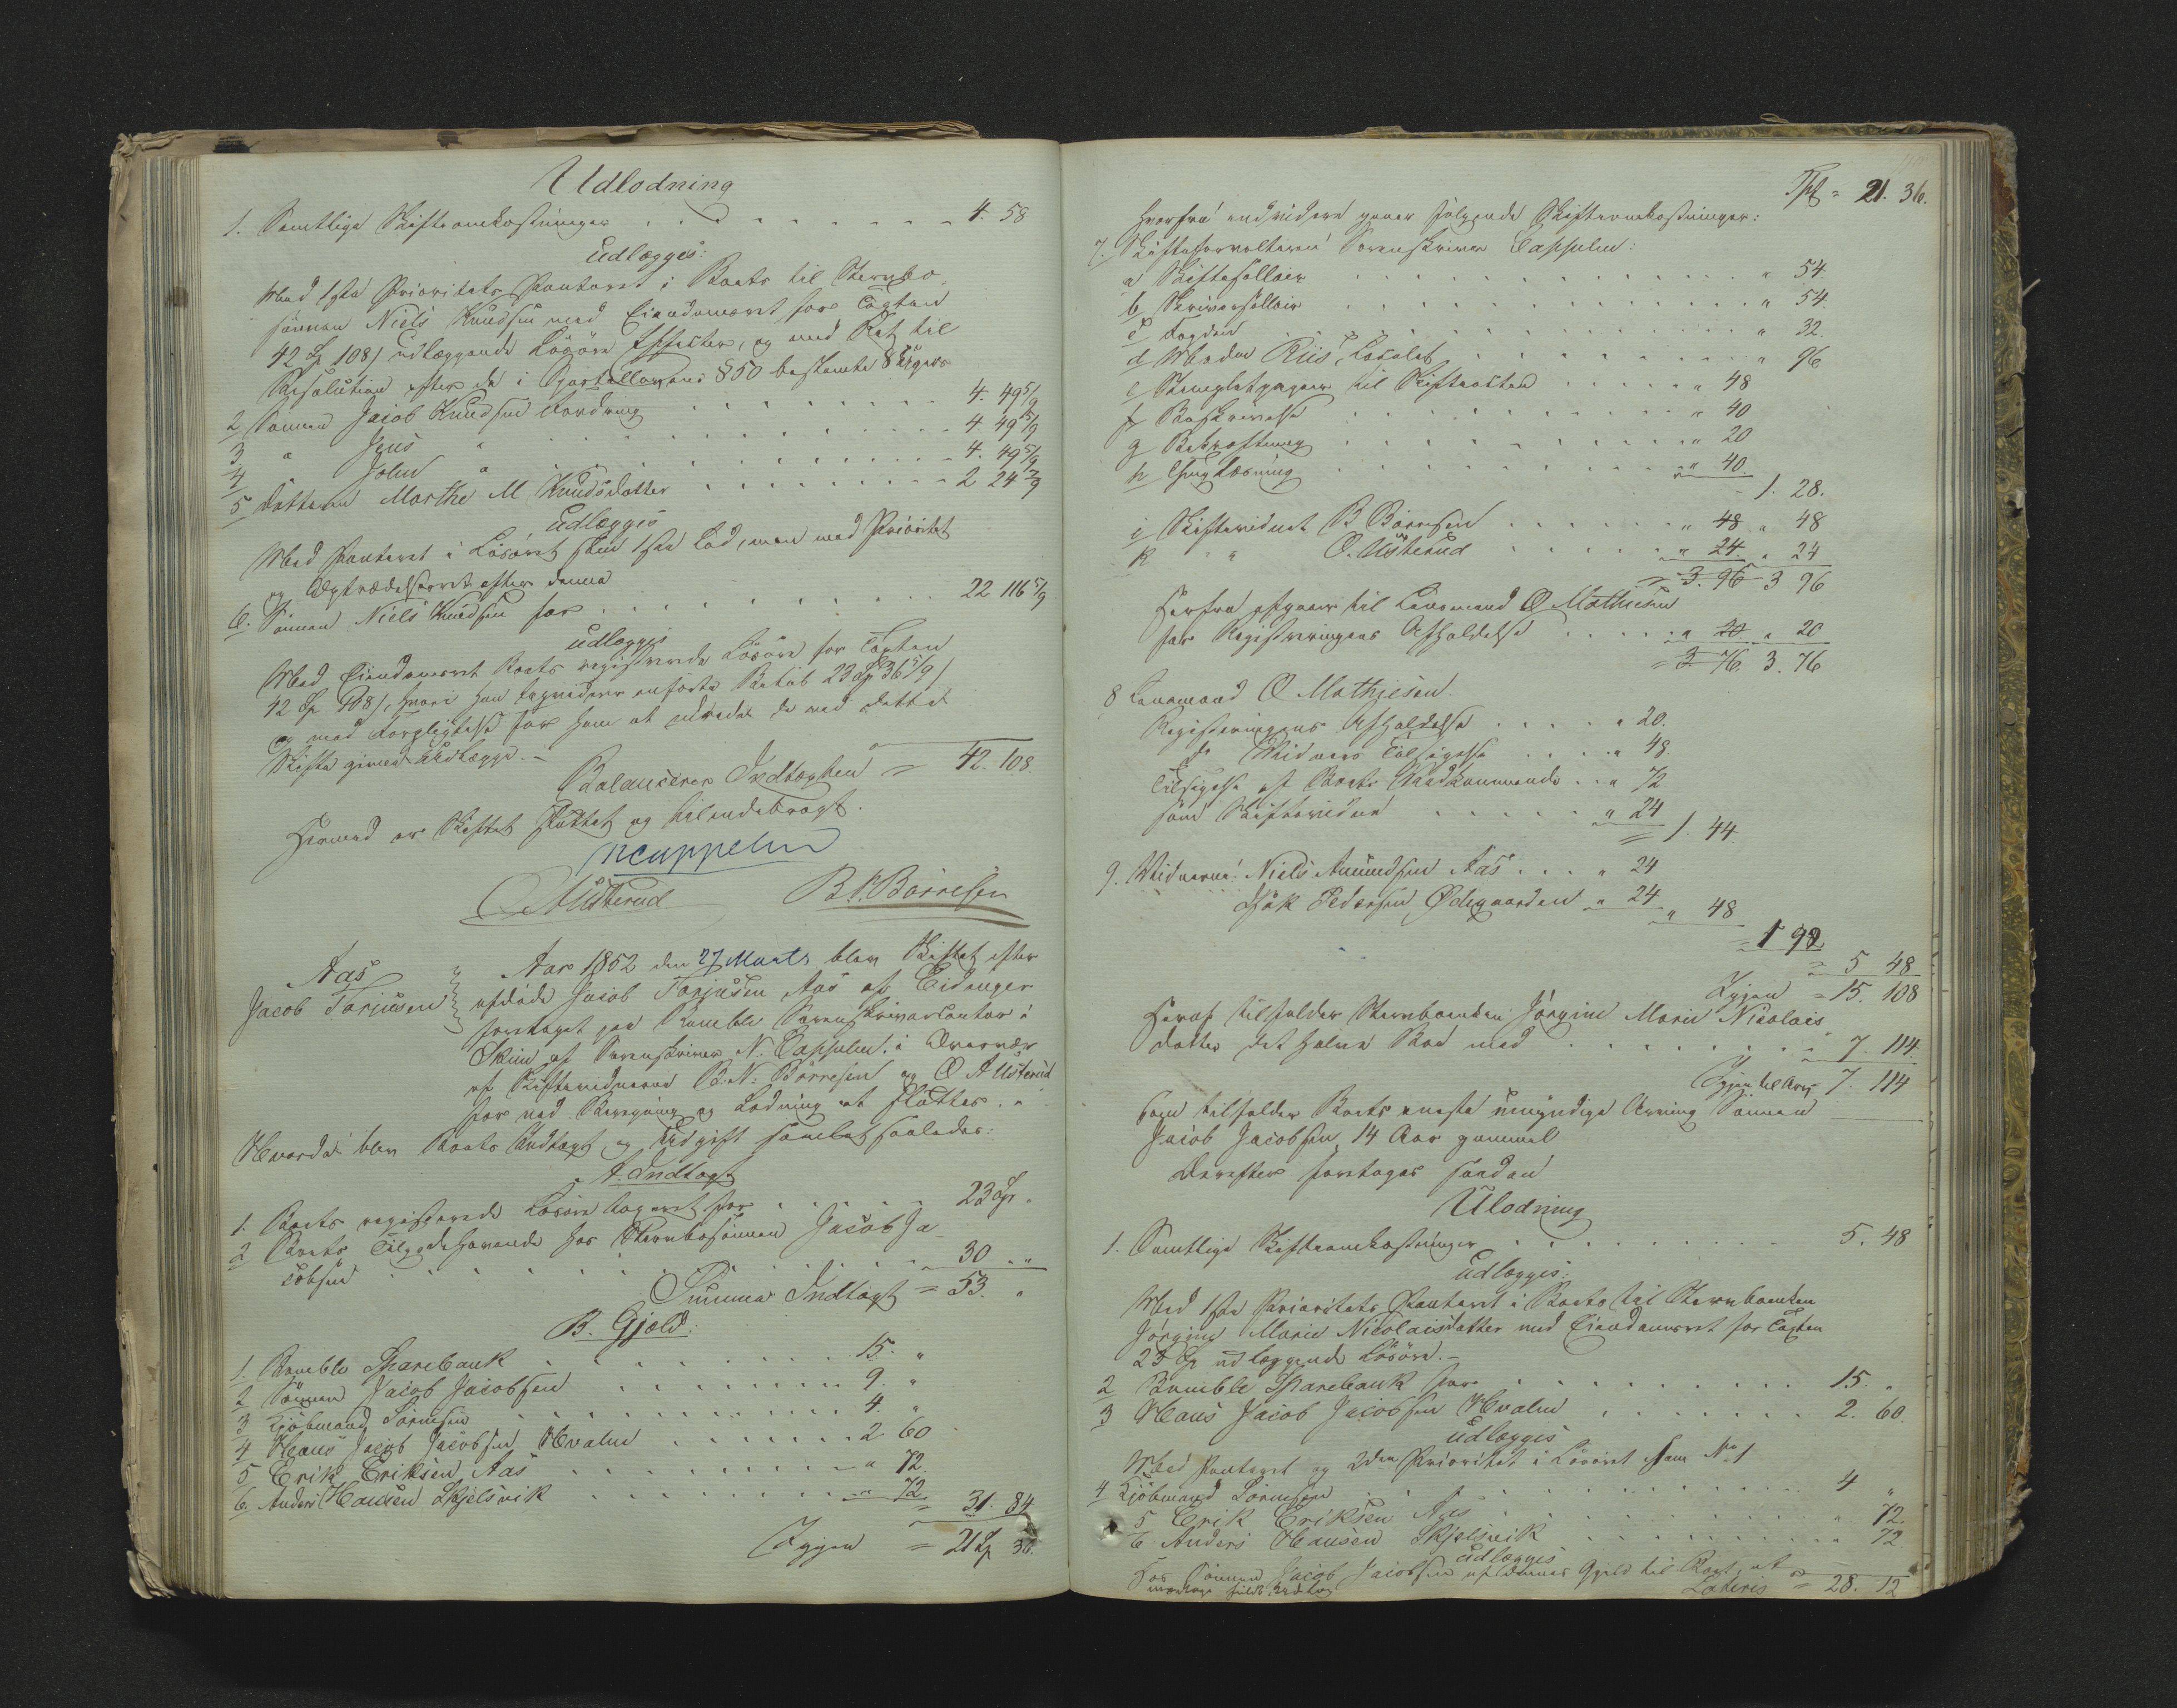 Udlodning
1. Samtlige Skifteomkostninger . . . . . . . . 4. 58
Udlægges:
Med 1ste Prioritets Panteret i Boets til Stervbo
sønnen Niels Knudsen med Eiendomsret for Taxten
42 Sp 108 / udlæggende Løsøre Effecter, og med Ret til
Resolution efter de i Sportellovens § 50 bestemte 8te Dages
2 Sønnen Jacob Knudsens Fordring . . . . . . . . 4. 49 5/9
3 " Jens " . . . . . . . . 4. 49 5/9
4 John " . . . . . . . . 4. 49 5/9
5 Datteren Marthe M Knudsdatter . . . . . . . . 2 24 7/9
Udlægges
Med Panteret i Løsøret som 1ste Lod, men med Prioritet
og Optrædelsesret efter denne
6. Sønnen Niels Knudsen for . . . . . . . . 22 116 5/9
udlægges
Med Eiendomsret Boets registrerede Løsøre for Taxten
42 Sp 108 /, hvori han liqviderer anførte Beløb 23 Sp 36 5/9 /
og med Forpligtelse for ham at udrede de ved dette
Skifte givne Udlægge. –
Balancerer Indtægten = 42. 108.
Hermed er Skiftet sluttet og tilendebragt.
NCappelen
O Austerud B. N. Børresen
Aas
Jacob Torjusen
Aar 1852 den 27 Marts blev Skiftet efter
afdøde Jacob Torjusen Aas af Eidanger
foretaget paa Bamble Sorenskrivercontor i
Skien af Sorenskriver N. Cappelen, i Overvær
af Skiftevidnerne B. N. Børresen og O Austerud
for ved Beregning og Lodning at sluttes. –
Hvorda blev Boets Indtægt og Udgift samlet saaledes:
A. Indtægt
1. Boets registrerede Løsøre beregnet for . . . . . . 23 Sp. "
2 Boets Tilgodehavende hos Stervbosønnen Jacob Ja-
cobsen . . . . . . . . 30 " "
Summa Indtægt = 53. "
B. Gjæld:
1. Bamble Sparebank . . . . . . . . 15. "
2 Sønnen Jacob Jacobsen . . . . . . . . 9. "
3 Kjøbmand Sørensen . . . . . . . . 4. "
4 Hans Jacob Jacobsen Hvalen . . . . . . 2 60
5 Erik Eriksen Aas . . . . . . . . " 72.
6. Anders Hansen Skjelsvik . . . . . . . . " 72.
= 31. 84
Igjen = 21 Sp 36.
Tpt = 21. 36.
Hvorfra endvidere gaaer følgende Skifteomkostninger:
7. Skifteforvalteren Sorenskriver Cappelen:
a Skiftesallair . . . . . . . . " 54.
b Skriversallair . . . . . . . . " 54
c Fogden . . . . . . . . " 32.
d Madm Riis, Localet . . . . . . . . " 96
e Stempletpapir til Skifteacten . . . . . " 48
f Beskrivelse . . . . . . . . " 40
g Bekræftning . . . . . . . . " 20
h Thinglæsning . . . . . . . . " 40
1. 28.
i Skiftevidnet B Børresen . . . . . . " 48 " 48
k " " O. Austerud . . . . . . " 24. " 24
= 3. 96 3 96
Herfra afgaaer til Lensmand O Mathiesen
for Registreringens Afholdelse . . . . . " 20 " 20
= 3 76. 3. 76
8 Lensmand O Mathiesen.
Registreringens Afholdelse . . . . . " 20.
do Vidners Tilsigelse . . . . " 48
Tilsigelse af Boets Vedkommende . . " 72
som Skiftevidne . . . . . " 24
= 1. 44.
9. Vidnerne: Niels Amundsen Aas . . . " 24
Isak Pedersen Ødegaarden " 24
" 48
= 1 92
= 5 48
Igjen = 15. 108
Heraf tilfalder Stervboenken Jørgine Marie Nicolais
datter det halve Boe med . . . . . . . . 7. 114.
Igjen til Arv 7. 114
som tilfalder Boets eneste umyndige Arving Sønnen
Jacob Jacobsen, 14 Aar gammel
Derefter foretages saadan
Ulodning
1. Samtlige Skifteomkostninger . . . . . . . . 5. 48
udlægges:
Med 1ste Prioritets Panteret i Boets til Stervboenken
Jørgine Marie Nicolaisdatter med Eiendomsret for Taxten
23 Sp udlæggende Løsøre. –
2 Bamble Sparebank for . . . . . . . . 15. "
3 Hans Jacob Jacobsen Hvalen . . . . . . . 2. 60.
udlægges
Med Panteret og 2den Prioritet i Løsøret som No 1
4 Kjøbmand Sørensen . . . . . . . . 4 "
5 Erik Eriksen Aas . . . . . . . . " 72.
6 Anders Hansen Skjelsvik . . . . . . . . " 72
udlægges
Hos Sønnen Jacob Jacobsen af dennes Gjæld til Boet, at
Lateris = 28. 12